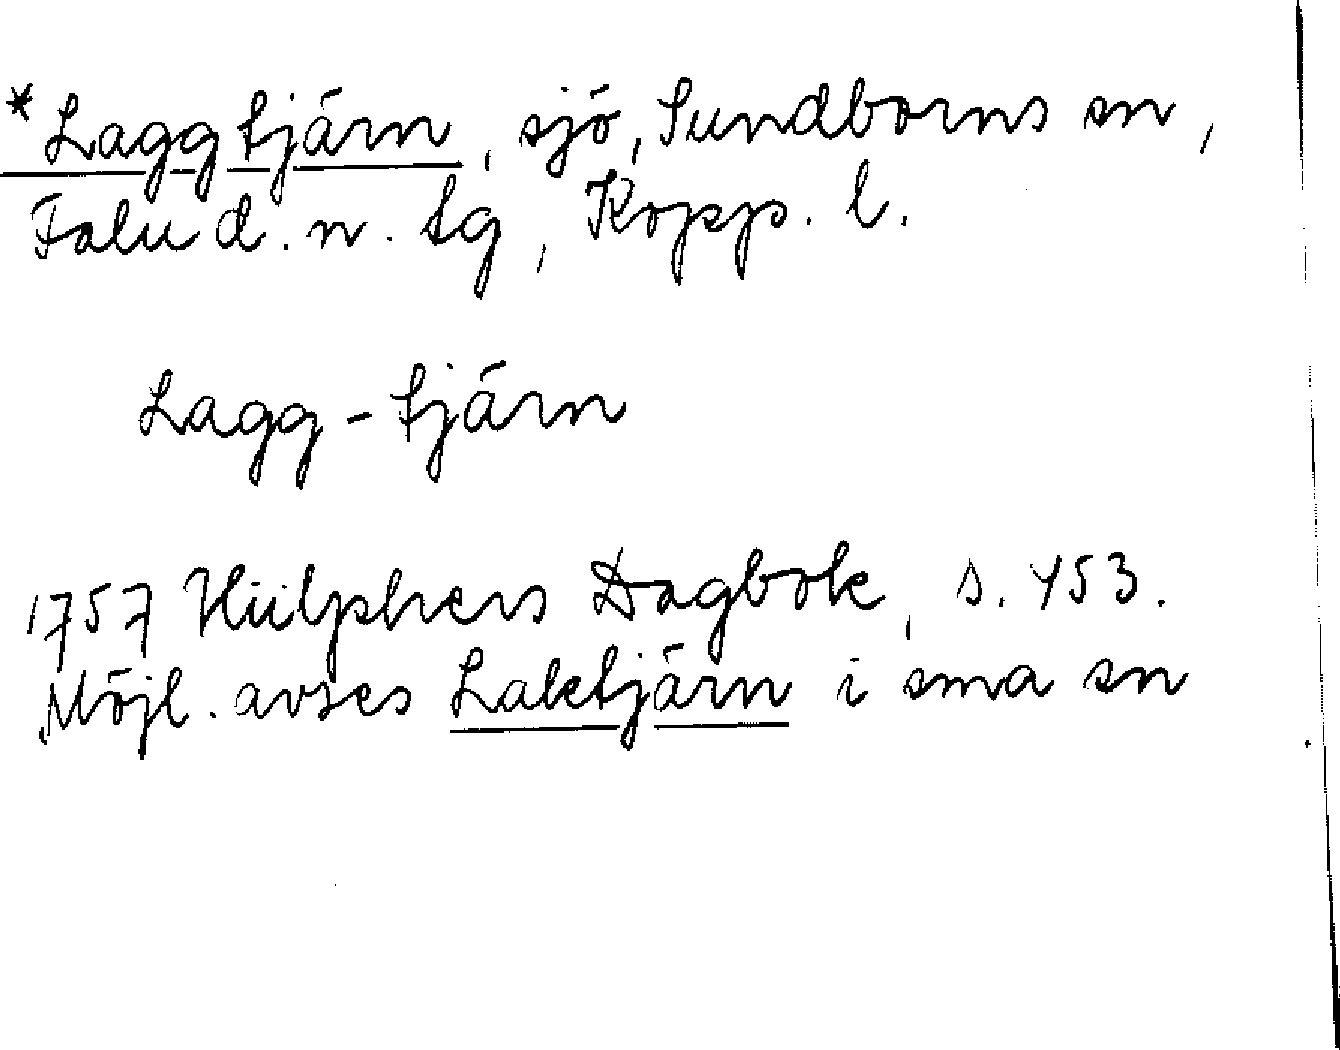 *Laggtjärn, sjö, Sundborns sn,
Falu d. n. tg, Kopp. l.
Lagg-tjärn
1757 Hülphers Dagbok, s. 453.
Möjl. avses Laktjärn i sma sn